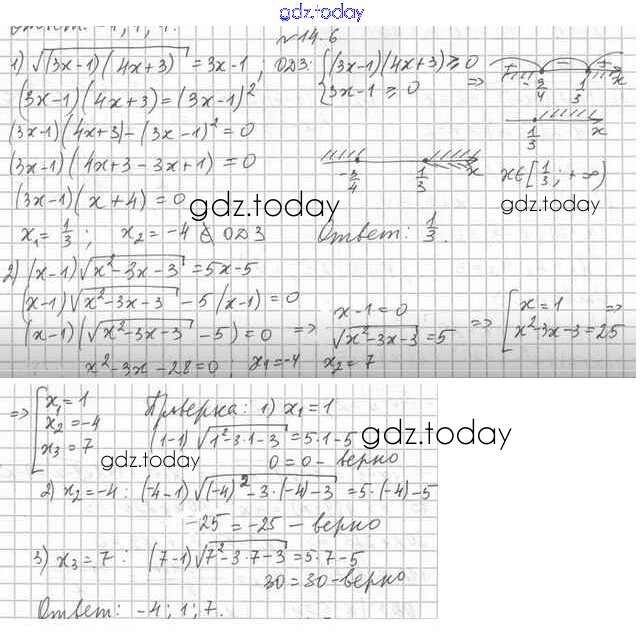 gdz.today
Ответ: -4; 1; 7.
№14.6
1) √((3x-1)(4x+3)) = 3x-1; ОДЗ: {(3x-1)(4x+3) ≥ 0
{3x-1 ≥ 0
=> + - + -3/4 1/3 x
(3x-1)(4x+3)=(3x-1)²
(3x-1)(4x+3)-(3x-1)²=0
1/3 x
(3x-1)(4x+3-3x+1)=0
-3/4 1/3 x
x∈[1/3; +∞)
(3x-1)(x+4)=0
gdz.today
gdz.today
x₁=1/3; x₂=-4 ∉ ОДЗ Ответ: 1/3.
2) (x-1)√(x²-3x-3)=5x-5
(x-1)√(x²-3x-3)-5(x-1)=0
(x-1)(√(x²-3x-3)-5)=0 => x-1=0
√(x²-3x-3)=5 => [x=1
x²-3x-3=25 =>
x²-3x-28=0; x₁=-4 x₂=7
=> [x₁=1
x₂=-4
x₃=7
Проверка: 1) x₁=1
(1-1)√(1²-3·1-3)=5·1-5
gdz.today
gdz.today
0=0 - верно
2) x₂=-4: (-4-1)√((-4)²-3·(-4)-3)=5·(-4)-5
-25=-25 - верно
3) x₃=7: (7-1)√(7²-3·7-3)=5·7-5
30=30-верно
Ответ: -4; 1; 7.